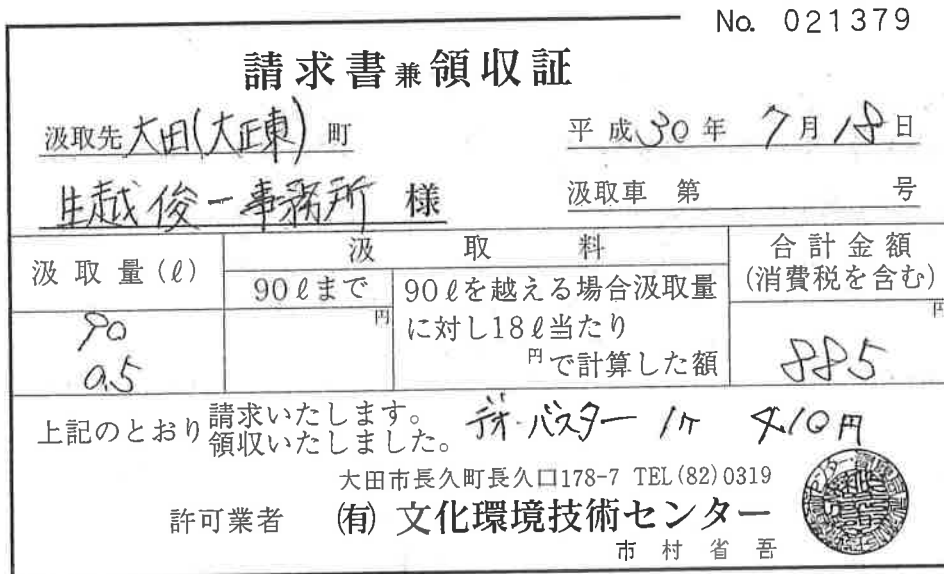 No. 021379
請求書兼領収証
汲取先 大田(大正東) 町
平成30年 7月18日
生越俊一事務所 様
汲取車 第 号
汲取量(ℓ)
汲取料
合計金額
(消費税を含む)
90ℓまで
90ℓを越える場合汲取量
に対し18ℓ当たり
円で計算した額
円
円
90
0.5
885
上記のとおり 請求いたします。
領収いたしました。
バスター 1ケ 410円
大田市長久町長久口178-7 TEL(82)0319
許可業者 (有) 文化環境技術センター
市村省吾